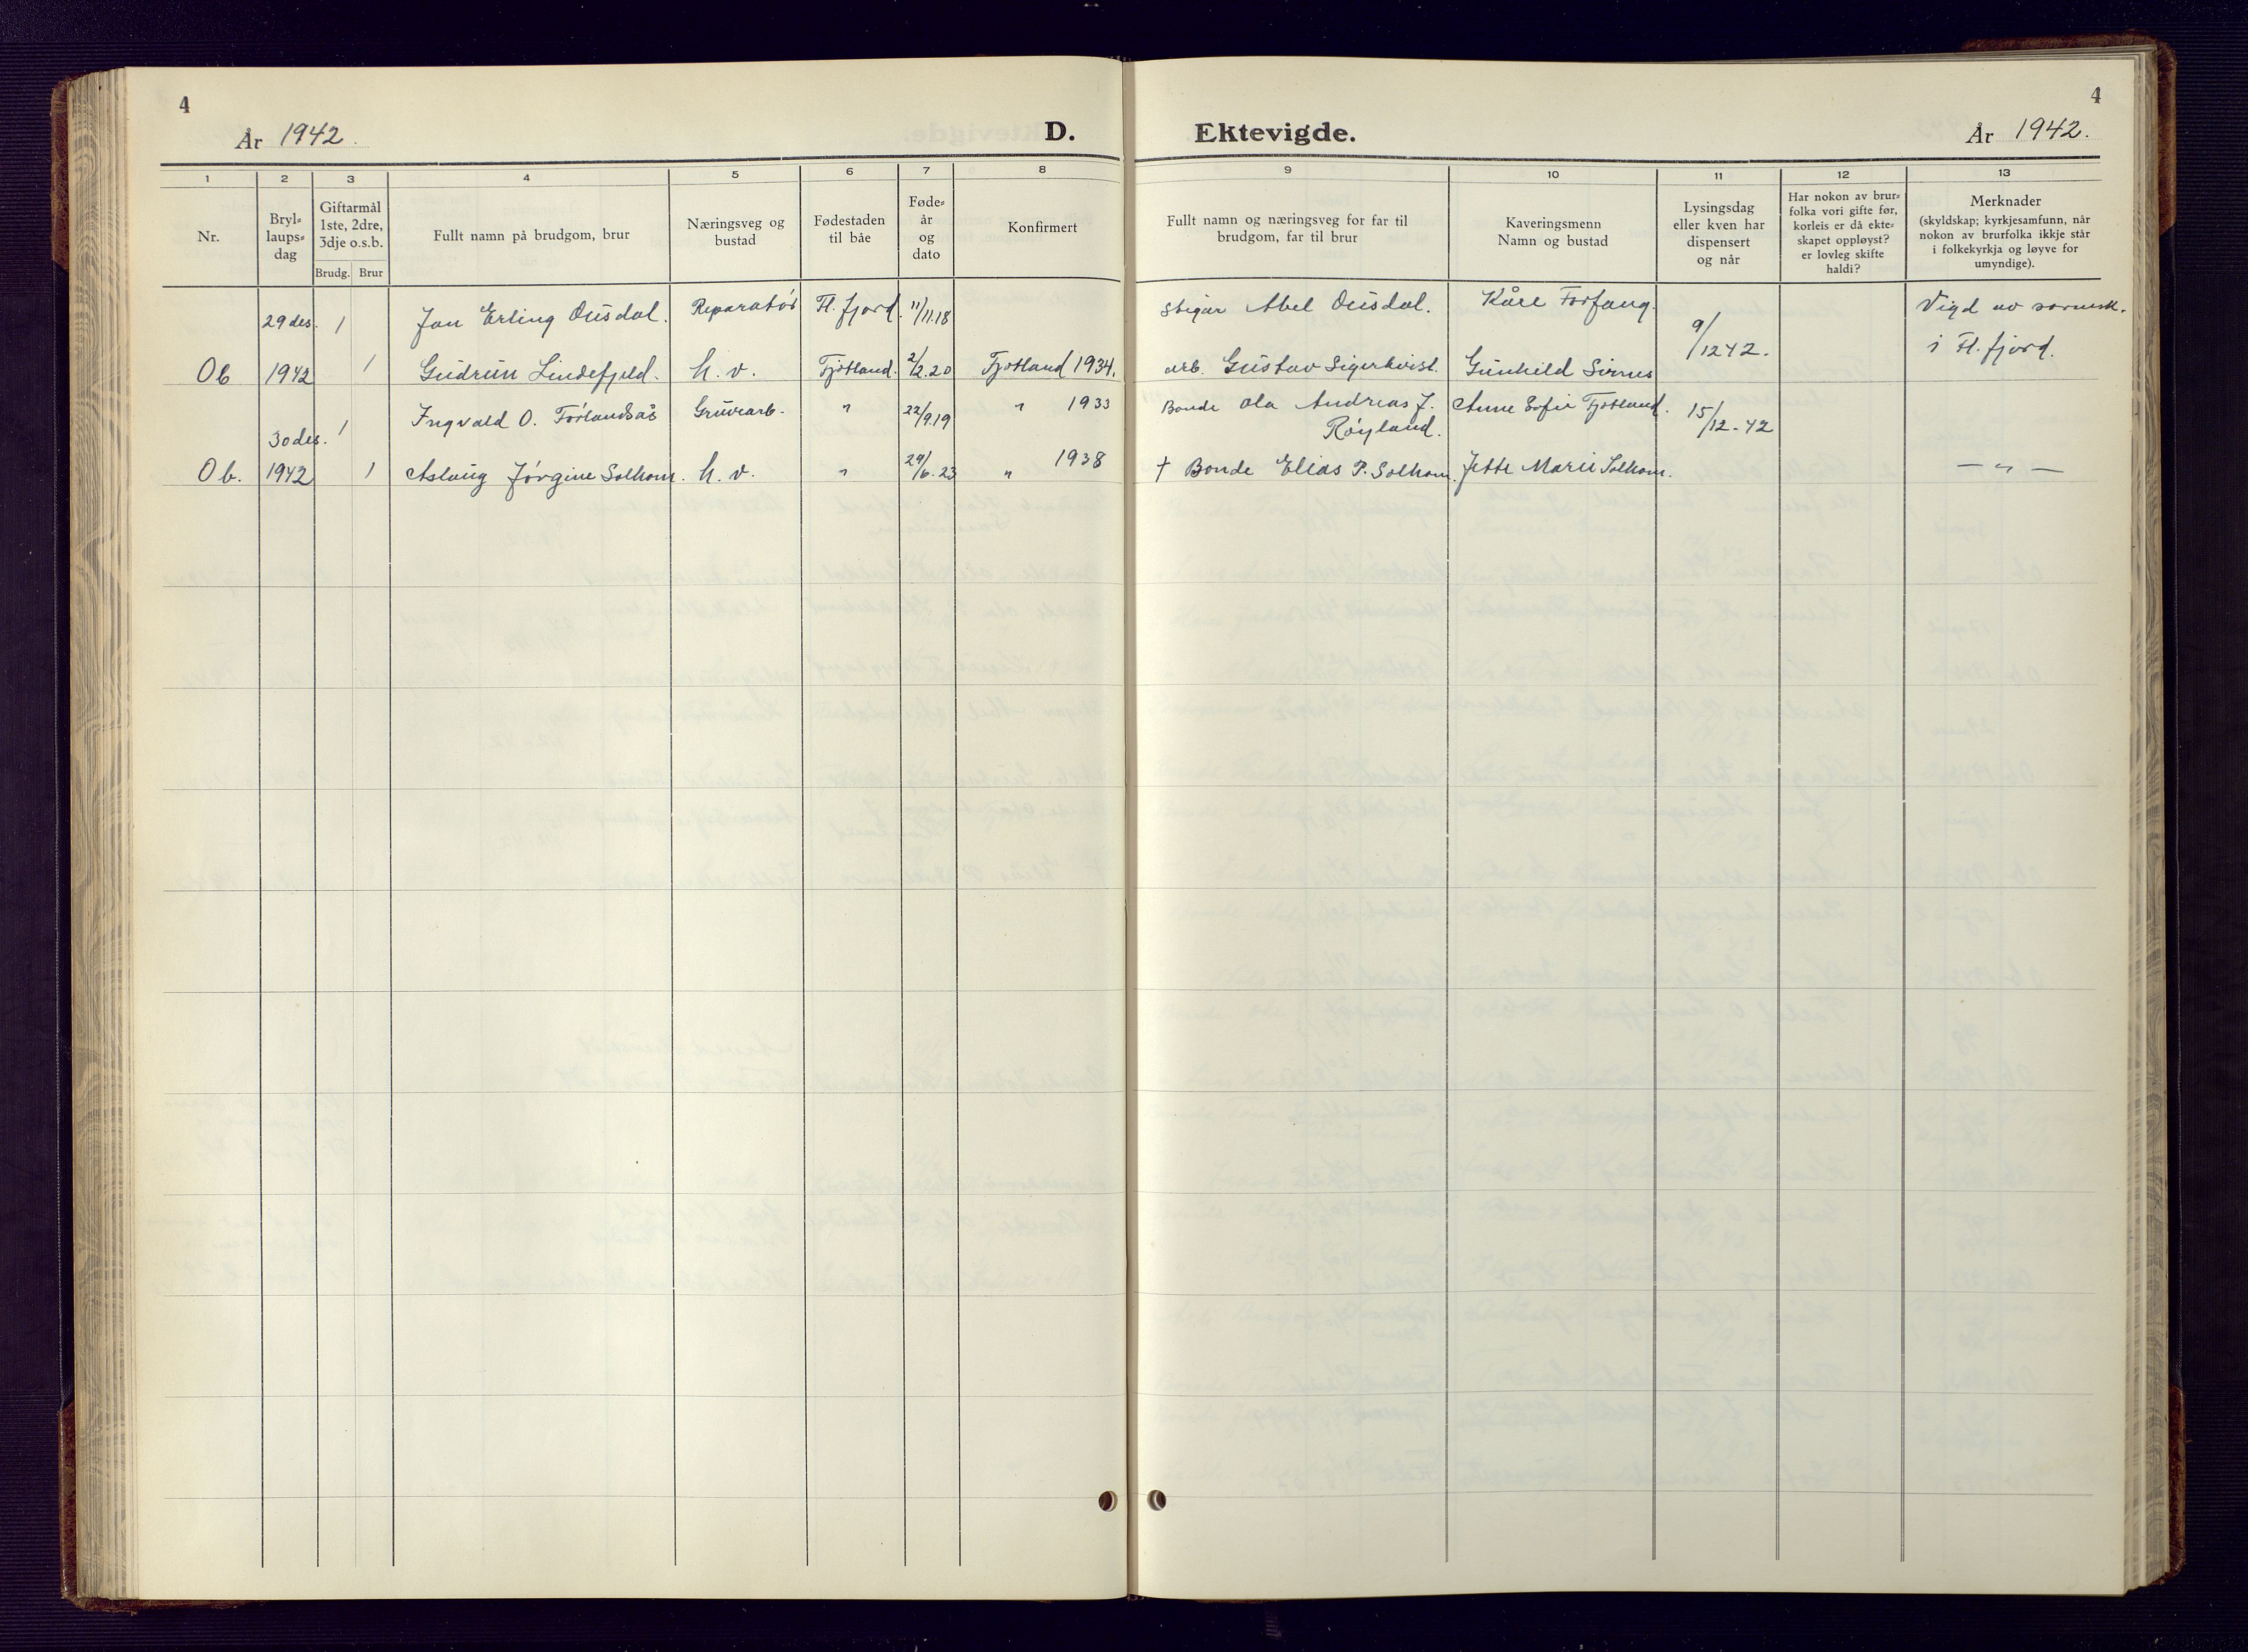 4
År 1942.
D.
1
2
3
4
5
6
7
8
Nr.
Bryl-
laups-
dag
Giftarmål
1ste, 2dre,
3dje o.s.b.
Brudg. Brur
Fullt namn på brudgom, brur
Næringsveg og
bustad
Fødestaden
til båe
Føde-
år
og
dato
Konfirmert
29 des. 1 Jan Erling Ousdal. Reparatør Fl. fjord. 11/11.18
Ob 1942 1 Gudrun Lindefjeld. h. v. Fjotland. 2/2.20 Fjotland 1934.
30 des. 1 Ingvald O.Førlandsås Gruvearb. " 22/9.19 " 1933
Ob. 1942 1 Aslaug Jørgine Solhom. h. v. " 24/6.23 " 1938
4
Ektevigde.
År 1942.
9
10
11
12
13
Fullt namn og næringsveg for far til
brudgom, far til brur
Kaveringsmenn
Namn og bustad
Lysingsdag
eller kven har
dispensert
og når
Har nokon av brur-
folka vori gifte før,
korleis er då ekte-
skapet oppløyst?
er lovleg skifte
haldi?
Merknader
(skyldskap; kyrkjesamfunn, når
nokon av brurfolka ikkje står
i folkekyrkja og løyve for
umyndige).
Stigar Abel Ousdal. Kåre Forfang. Vigd av sorensk.
9/12 42. i Fl. fjord.
arb. Gustav Sigerkvist. Gunhild Sirnes
Bonde Ola Andreas J. Anne Sofie Fjotland. 15/12-42
Røyland.
† Bonde Elias P. Solhom. Jette Marie Solhom. — " —